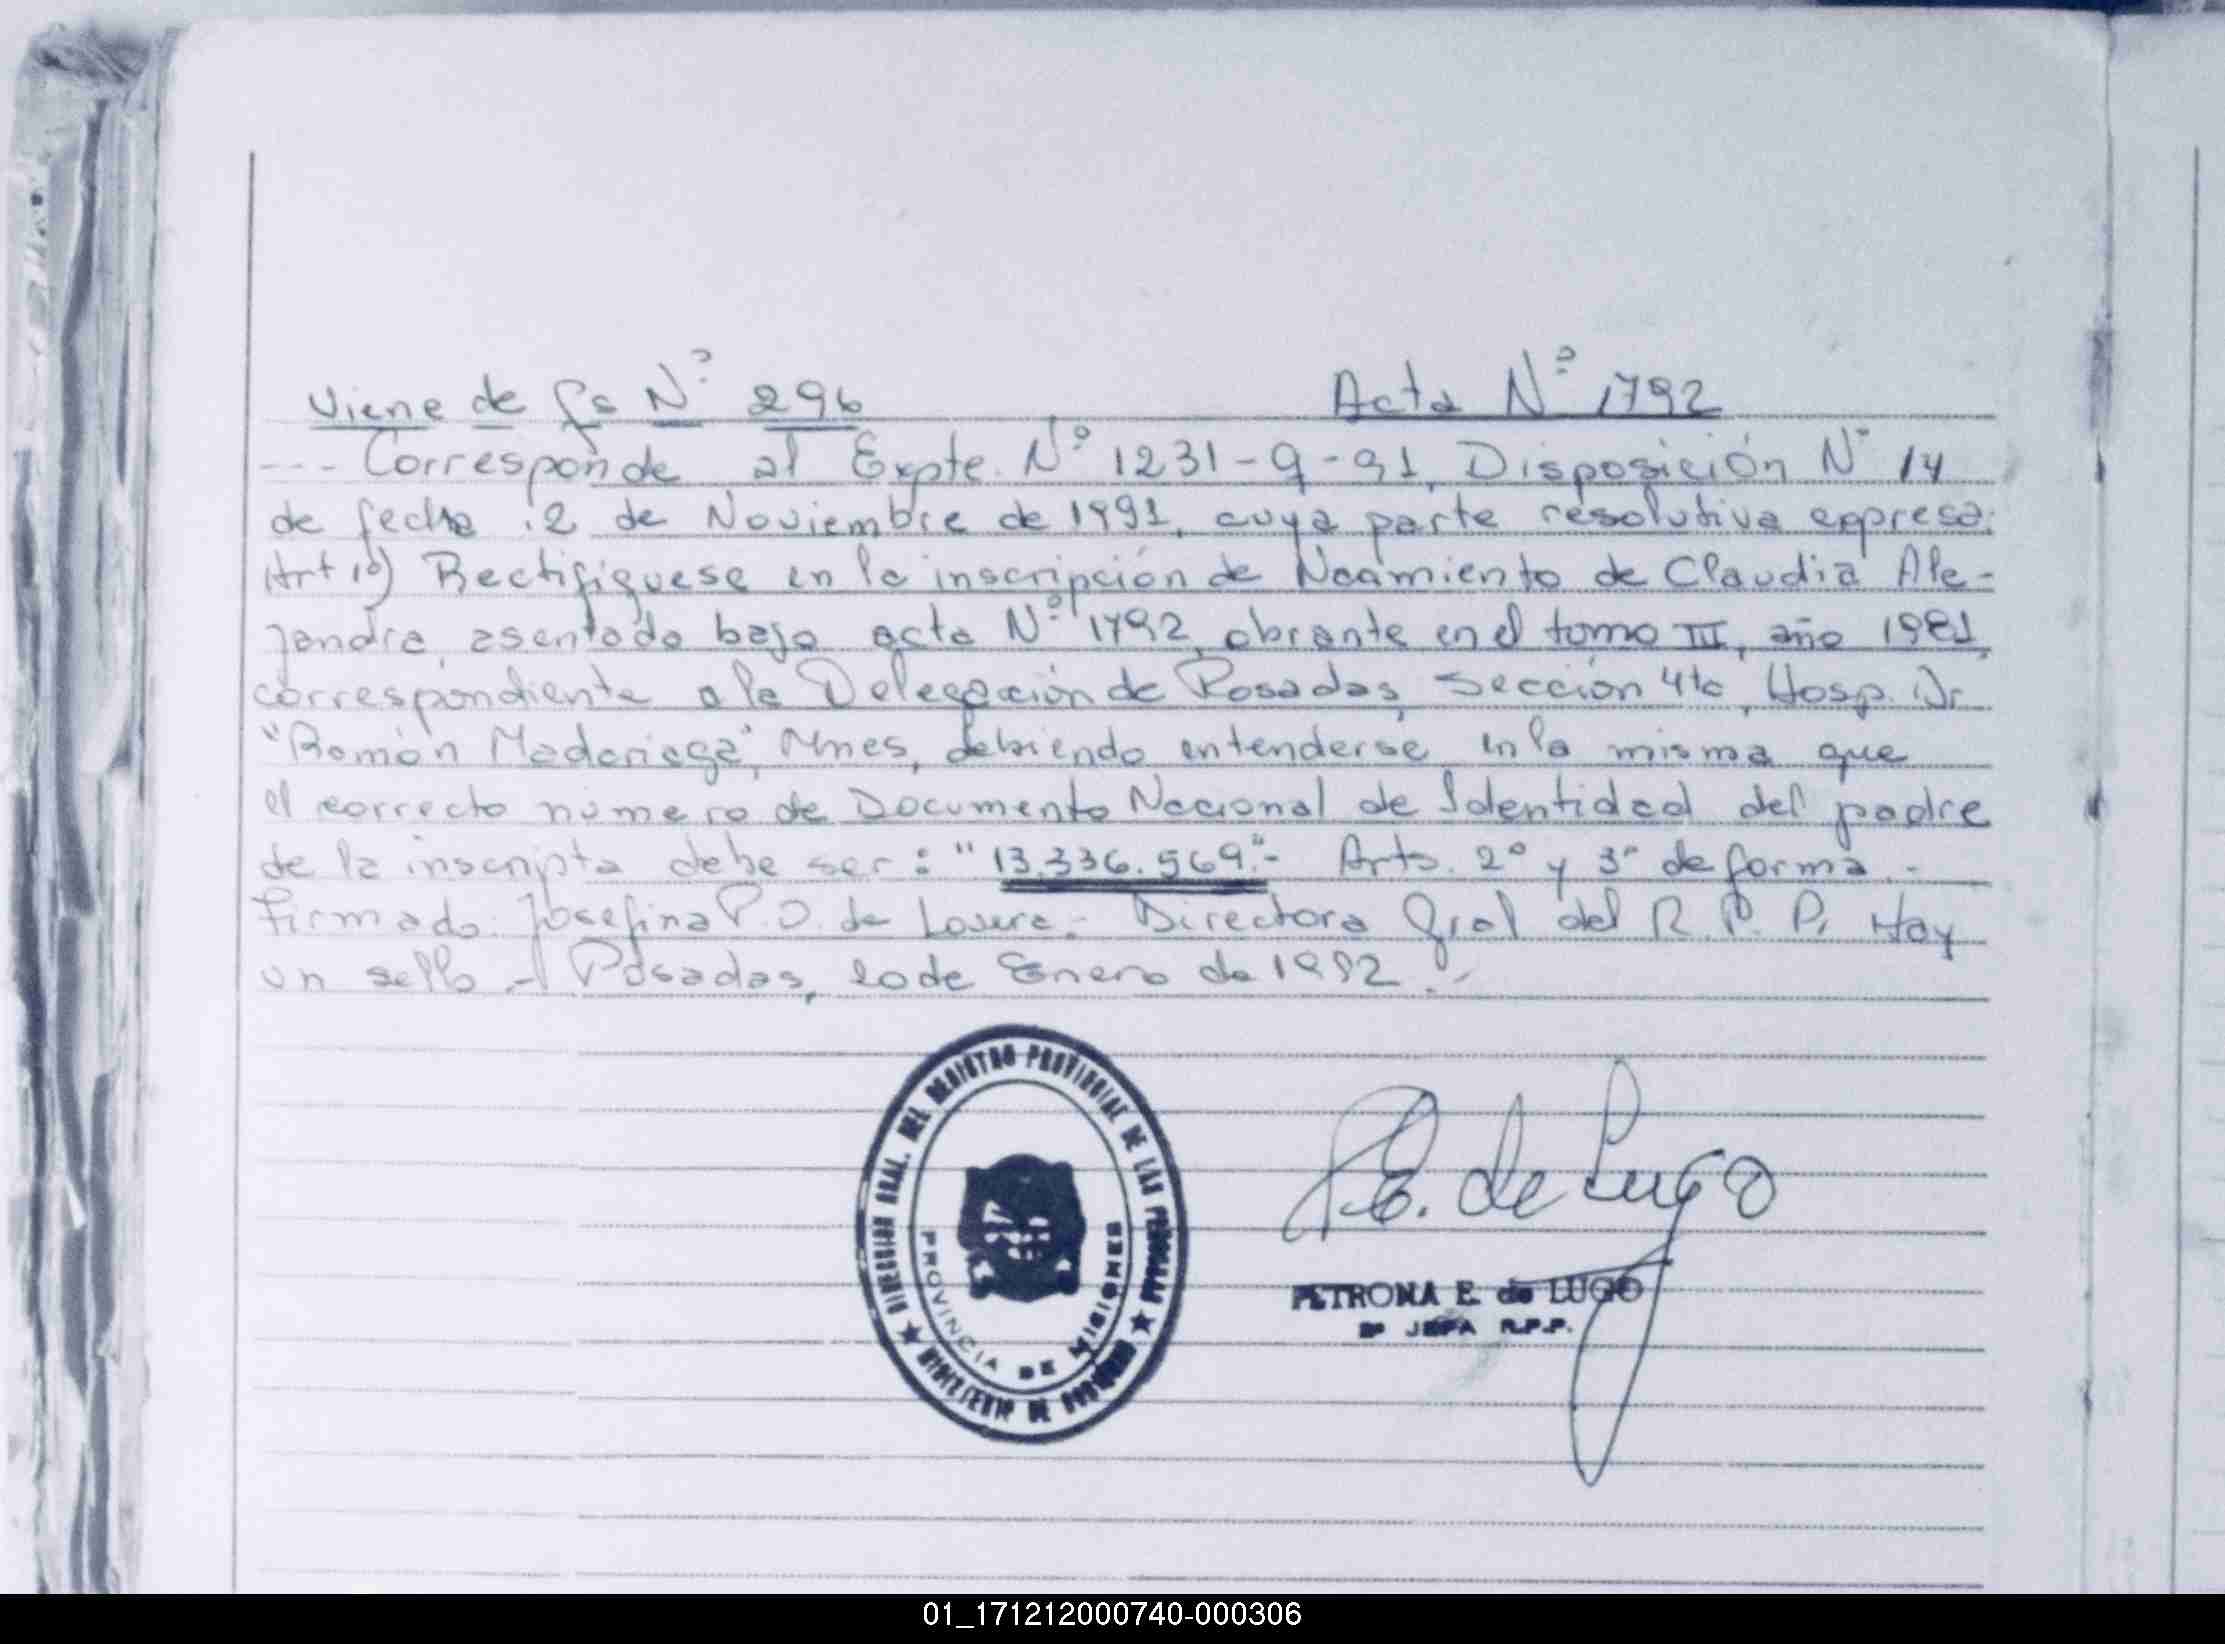 Viene de fs Nº 296 Acta Nº 1792
--- Corresponde al Expte. Nº 1231-9-91, Disposición Nº 14
de fecha 12 de Noviembre de 1991, cuya parte resolutiva expresa:
Art 1º) Rectifiquese en la inscripción de Nacimiento de Claudia Ale-
jandra, asentado bajo acta Nº 1792, obrante en el tomo III, año 1981,
correspondiente a la Delegación de Posadas, Sección 4ta, Hosp. Dr
"Ramón Madariaga", Mnes, debiendo entenderse en la misma que
el correcto número de Documento Nacional de Identidad del padre
de la inscripta debe ser: "13.336.569".- Arts. 2º y 3º de forma.-
Firmado: Josefina P.O. de - Directora Gral del R.P.P. Hay
un sello.- Posadas, 20 de Enero de 1992.-
DIRECCION GRAL. DEL REGISTRO PROVINCIAL DE LAS PERSONAS
PROVINCIA DE MISIONES
MINISTERIO DE GOBIERNO
P.E. de Lugo
PETRONA E. de LUGO
JEFA R.P.P.
01_171212000740-000306